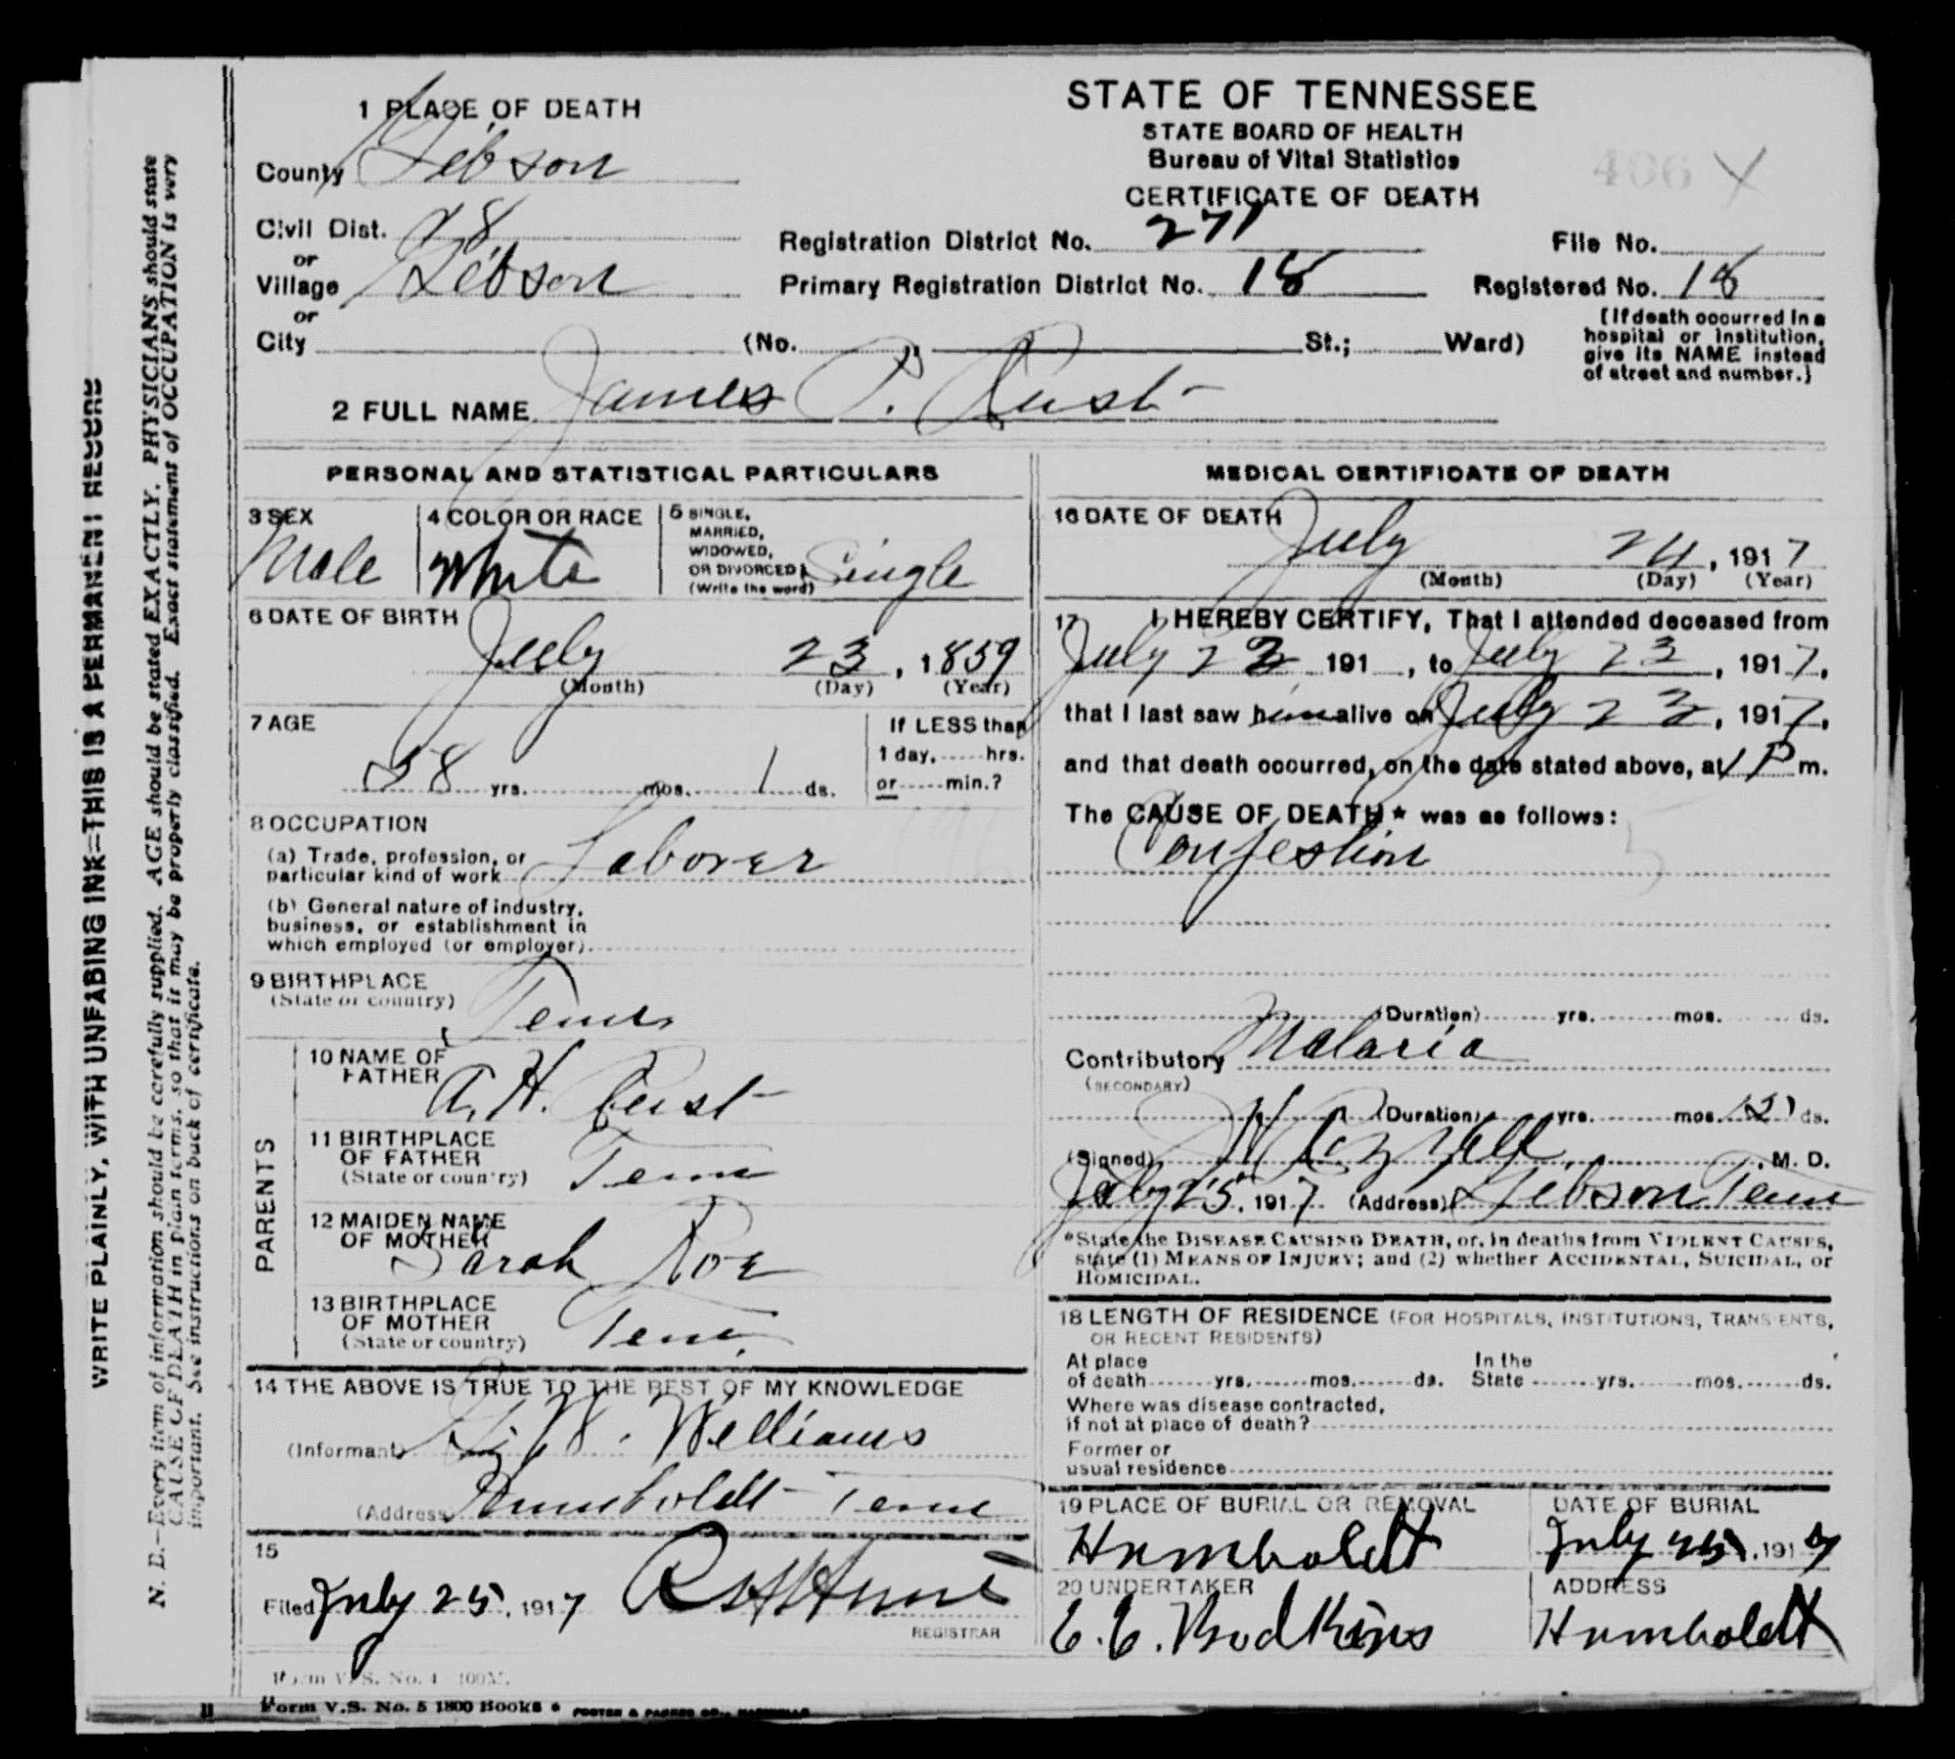 STATE OF TENNESSEE
STATE BOARD OF HEALTH
Bureau of Vital Statistics
CERTIFICATE OF DEATH
406 X
1 PLACE OF DEATH
County Gibson
Civil Dist. 28
or
Village Gibson
or
City (No. St.; Ward)
Registration District No. 271
File No.
Primary Registration District No. 18
Registered No. 18
(If death occurred in a
hospital or institution,
give its NAME instead
of street and number.)
2 FULL NAME James P. Rust
PERSONAL AND STATISTICAL PARTICULARS
3 SEX
Male
4 COLOR OR RACE
White
5 SINGLE,
MARRIED,
WIDOWED,
OR DIVORCED
(Write the word)
Single
6 DATE OF BIRTH
July 23, 1859
(Month) (Day) (Year)
7 AGE
58 yrs. mos. 1 ds.
If LESS than
1 day, hrs.
or min.?
8 OCCUPATION
(a) Trade, profession, or
particular kind of work Laborer
(b) General nature of industry,
business, or establishment in
which employed (or employer)
9 BIRTHPLACE
(State or country)
Tenn
PARENTS
10 NAME OF
FATHER
A. H. Rust
11 BIRTHPLACE
OF FATHER
(State or country)
Tenn
12 MAIDEN NAME
OF MOTHER
Sarah Roe
13 BIRTHPLACE
OF MOTHER
(State or country)
Tenn
14 THE ABOVE IS TRUE TO THE BEST OF MY KNOWLEDGE
(Informant) W. Williams
(Address) Humboldt Tenn
15
Filed July 25, 1917
REGISTRAR
MEDICAL CERTIFICATE OF DEATH
16 DATE OF DEATH
July 24, 1917
(Month) (Day) (Year)
17 I HEREBY CERTIFY, That I attended deceased from
July 23 191 , to July 23, 1917,
that I last saw him alive on July 23, 1917,
and that death occurred, on the date stated above, at 1 P m.
The CAUSE OF DEATH* was as follows:
Congestion
(Duration) yrs. mos. ds.
Contributory Malaria
(SECONDARY)
(Duration) yrs. mos. ds.
(Signed) M. D.
July 25, 1917 (Address) Gibson Tenn
*State the DISEASE CAUSING DEATH, or, in deaths from VIOLENT CAUSES,
state (1) MEANS OF INJURY; and (2) whether ACCIDENTAL, SUICIDAL, or
HOMICIDAL.
18 LENGTH OF RESIDENCE (FOR HOSPITALS, INSTITUTIONS, TRANSIENTS,
OR RECENT RESIDENTS)
At place
of death yrs. mos. ds.
In the
State yrs. mos. ds.
Where was disease contracted,
if not at place of death?
Former or
usual residence
19 PLACE OF BURIAL OR REMOVAL
Humboldt
DATE OF BURIAL
July 25, 1917
20 UNDERTAKER
E. E. Bodkins
ADDRESS
Humboldt
Form V.S. No. 4 100M.
Form V.S. No. 5 1800 Books
WRITE PLAINLY, WITH UNFADING INK—THIS IS A PERMANENT RECORD
N. B.—Every item of information should be carefully supplied. AGE should be stated EXACTLY. PHYSICIANS should state
CAUSE OF DEATH in plain terms, so that it may be properly classified. Exact statement of OCCUPATION is very
important. See instructions on back of certificate.